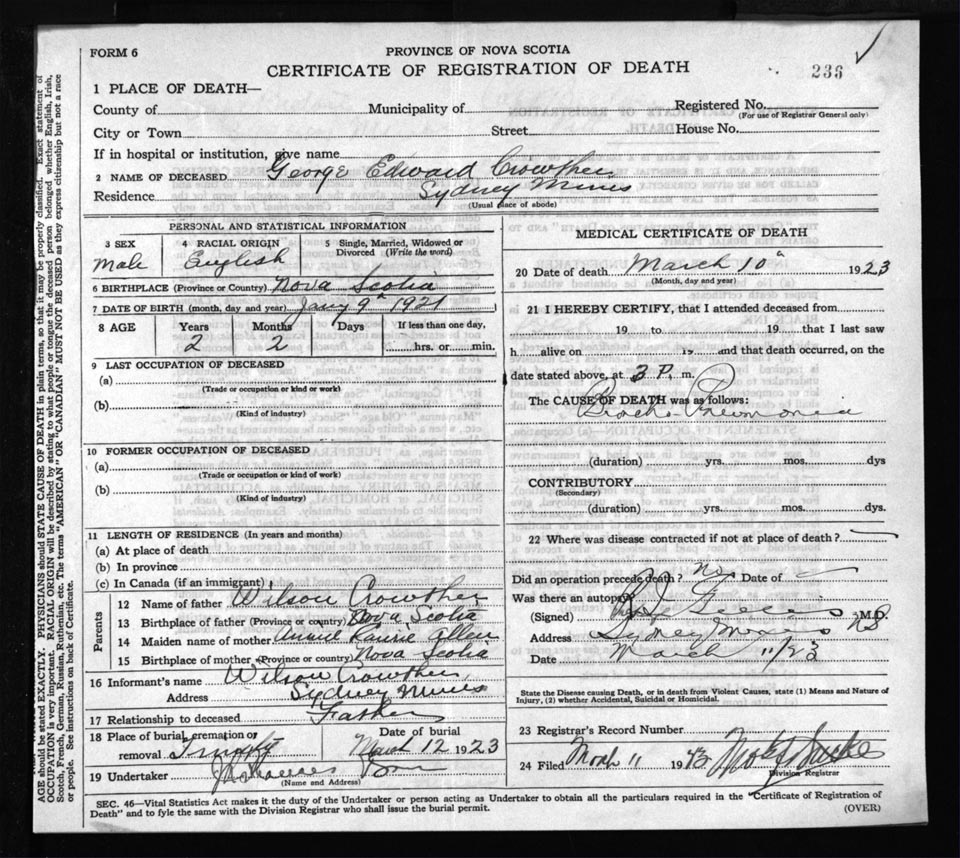 FORM 6
PROVINCE OF NOVA SCOTIA
CERTIFICATE OF REGISTRATION OF DEATH
236
1 PLACE OF DEATH—
County of Municipality of Registered No.
(For use of Registrar General only)
City or Town Street House No.
If in hospital or institution, give name
2 NAME OF DECEASED George Edward Crowther
Residence Sydney Mines
(Usual place of abode)
PERSONAL AND STATISTICAL INFORMATION
3 SEX 4 RACIAL ORIGIN 5 Single, Married, Widowed or Divorced (Write the word)
Male English
6 BIRTHPLACE (Province or Country) Nova Scotia
7 DATE OF BIRTH (month, day and year) Jany 9th 1921
8 AGE Years Months Days If less than one day,
2 2 hrs. or min.
9 LAST OCCUPATION OF DECEASED
(a)
(Trade or occupation or kind or work)
(b)
(Kind of industry)
10 FORMER OCCUPATION OF DECEASED
(a)
(Trade or occupation or kind of work)
(b)
(Kind of industry)
11 LENGTH OF RESIDENCE (In years and months)
(a) At place of death
(b) In province
(c) In Canada (if an immigrant)
Parents
12 Name of father Wilson Crowther
13 Birthplace of father (Province or country) Nova Scotia
14 Maiden name of mother Allen
15 Birthplace of mother (Province or country) Nova Scotia
16 Informant's name Wilson Crowther
Address Sydney Mines
17 Relationship to deceased Father
18 Place of burial, cremation or removal Trinity Date of burial March 12 1923
19 Undertaker
(Name and Address)
MEDICAL CERTIFICATE OF DEATH
20 Date of death March 10th 1923
(Month, day and year)
21 I HEREBY CERTIFY, that I attended deceased from
19 to 19 that I last saw
h alive on 19 and that death occurred, on the
date stated above, at 3 P. m.
The CAUSE OF DEATH was as follows:
Broncho Pneumonia
(duration) yrs. mos. dys
CONTRIBUTORY
(Secondary)
(duration) yrs. mos. dys.
22 Where was disease contracted if not at place of death?
Did an operation precede death? No Date of
Was there an autopsy
(Signed) M.D.
Address Sydney Mines NS
Date March 11/23
State the Disease causing Death, or in death from Violent Causes, state (1) Means and Nature of
Injury, (2) whether Accidental, Suicidal or Homicidal.
23 Registrar's Record Number
24 Filed March 11 1923
Division Registrar
SEC. 46—Vital Statistics Act makes it the duty of the Undertaker or person acting as Undertaker to obtain all the particulars required in the "Certificate of Registration of
Death" and to fyle the same with the Division Registrar who shall issue the burial permit. (OVER)
AGE should be stated EXACTLY. PHYSICIANS should STATE CAUSE OF DEATH in plain terms, so that it may be properly classified. Exact statement of
OCCUPATION is very important. RACIAL ORIGIN will be described by stating to what people or tongue the deceased person belonged whether English, Irish,
Scotch, French, German, Russian, Ruthenian, etc. The terms "AMERICAN" OR "CANADIAN" MUST NOT BE USED as they express citizenship but not a race
or people. See instructions on back of Certificate.